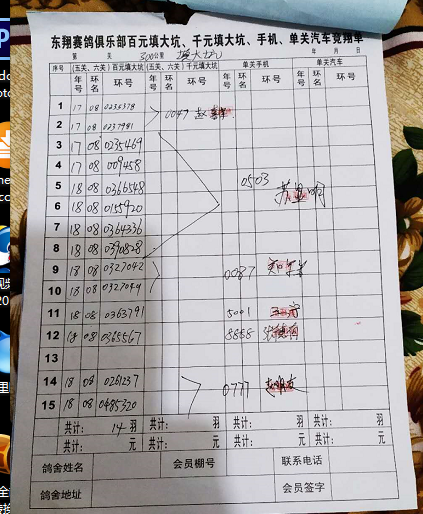 东翔赛鸽俱乐部百元填大坑、千元填大坑、手机、单关汽车竞翔单
第 关 300公里 填大坑 年 月 日
序号 (五关、六关)百元填大坑 (五关、六关)千元填大坑 单关手机 单关汽车
年号 环名 环号 年号 环名 环号 年号 环名 环号 年号 环名 环号
1 17 08 0236378
0047 赵
2 17 08 0237981
3 17 08 0235469
4 17 08 009458
5 18 08 0366548
0503 苏 明
6 18 08 0155920
7 18 08 0364336
8 18 08 0390828
9 18 08 0327042 0087
10 18 08
11 18 08 0363791 5001 王
12 18 08 0365567 8888 张德
13
14 18 08 0261237 0777 赵
15 18 08 0485320
共计: 14 羽 共计: 羽 共计: 羽 共计: 羽
共计: 元 共计: 元 共计: 元 共计: 元
鸽舍姓名 会员棚号 联系电话
鸽舍地址 会员签字